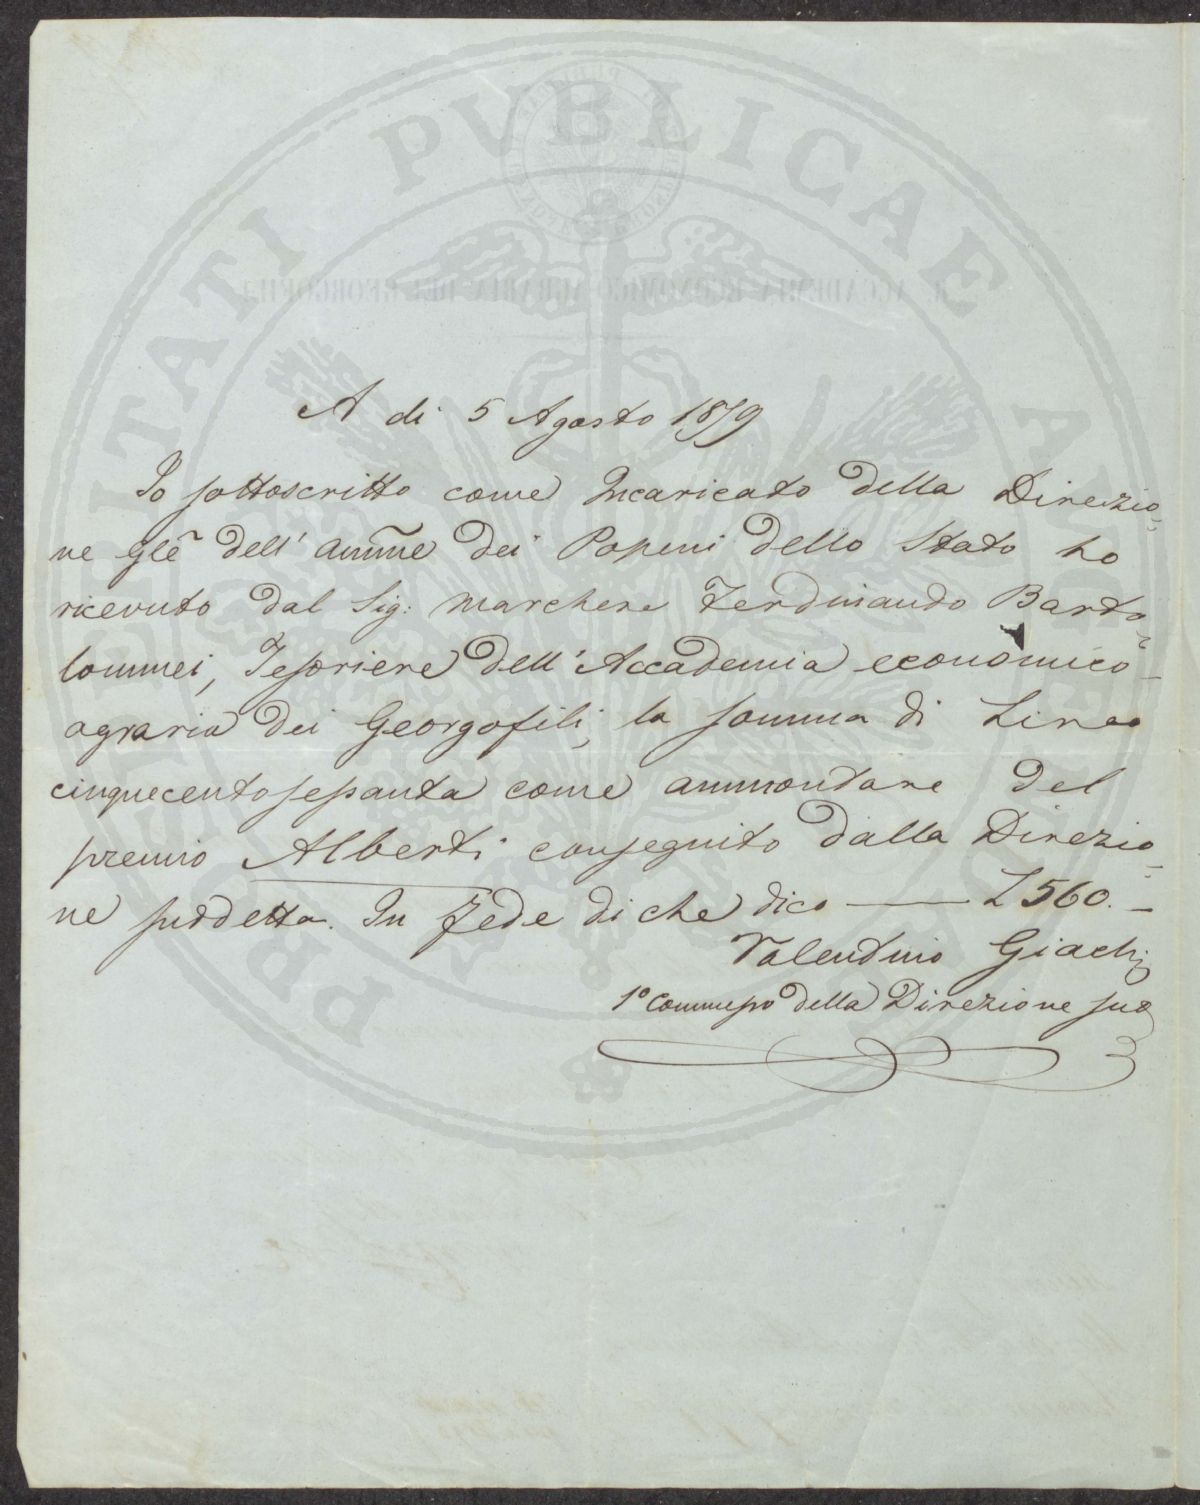 PROSPERITATI PUBLICAE AUGENDAE
R. ACCADEMIA ECONOMICO-AGRARIA DEI GEORGOFILI
A di 5 Agosto 1879
Io sottoscritto come Incaricato della Direzio=
ne Gle dell' Amm̃ne dei Possessi dello Stato ho
ricevuto dal Sig: Marchese Ferdinando Barto=
lommei, Tesoriere dell' Accademia economico-
agraria dei Georgofili, la somma di Lire
cinquecentosessanta come ammontare del
premio Alberti conseguito dalla Direzio=
ne suddetta. In fede di che dico — L 560. —
Valentino Giachi
1º Commesso della Direzione sud